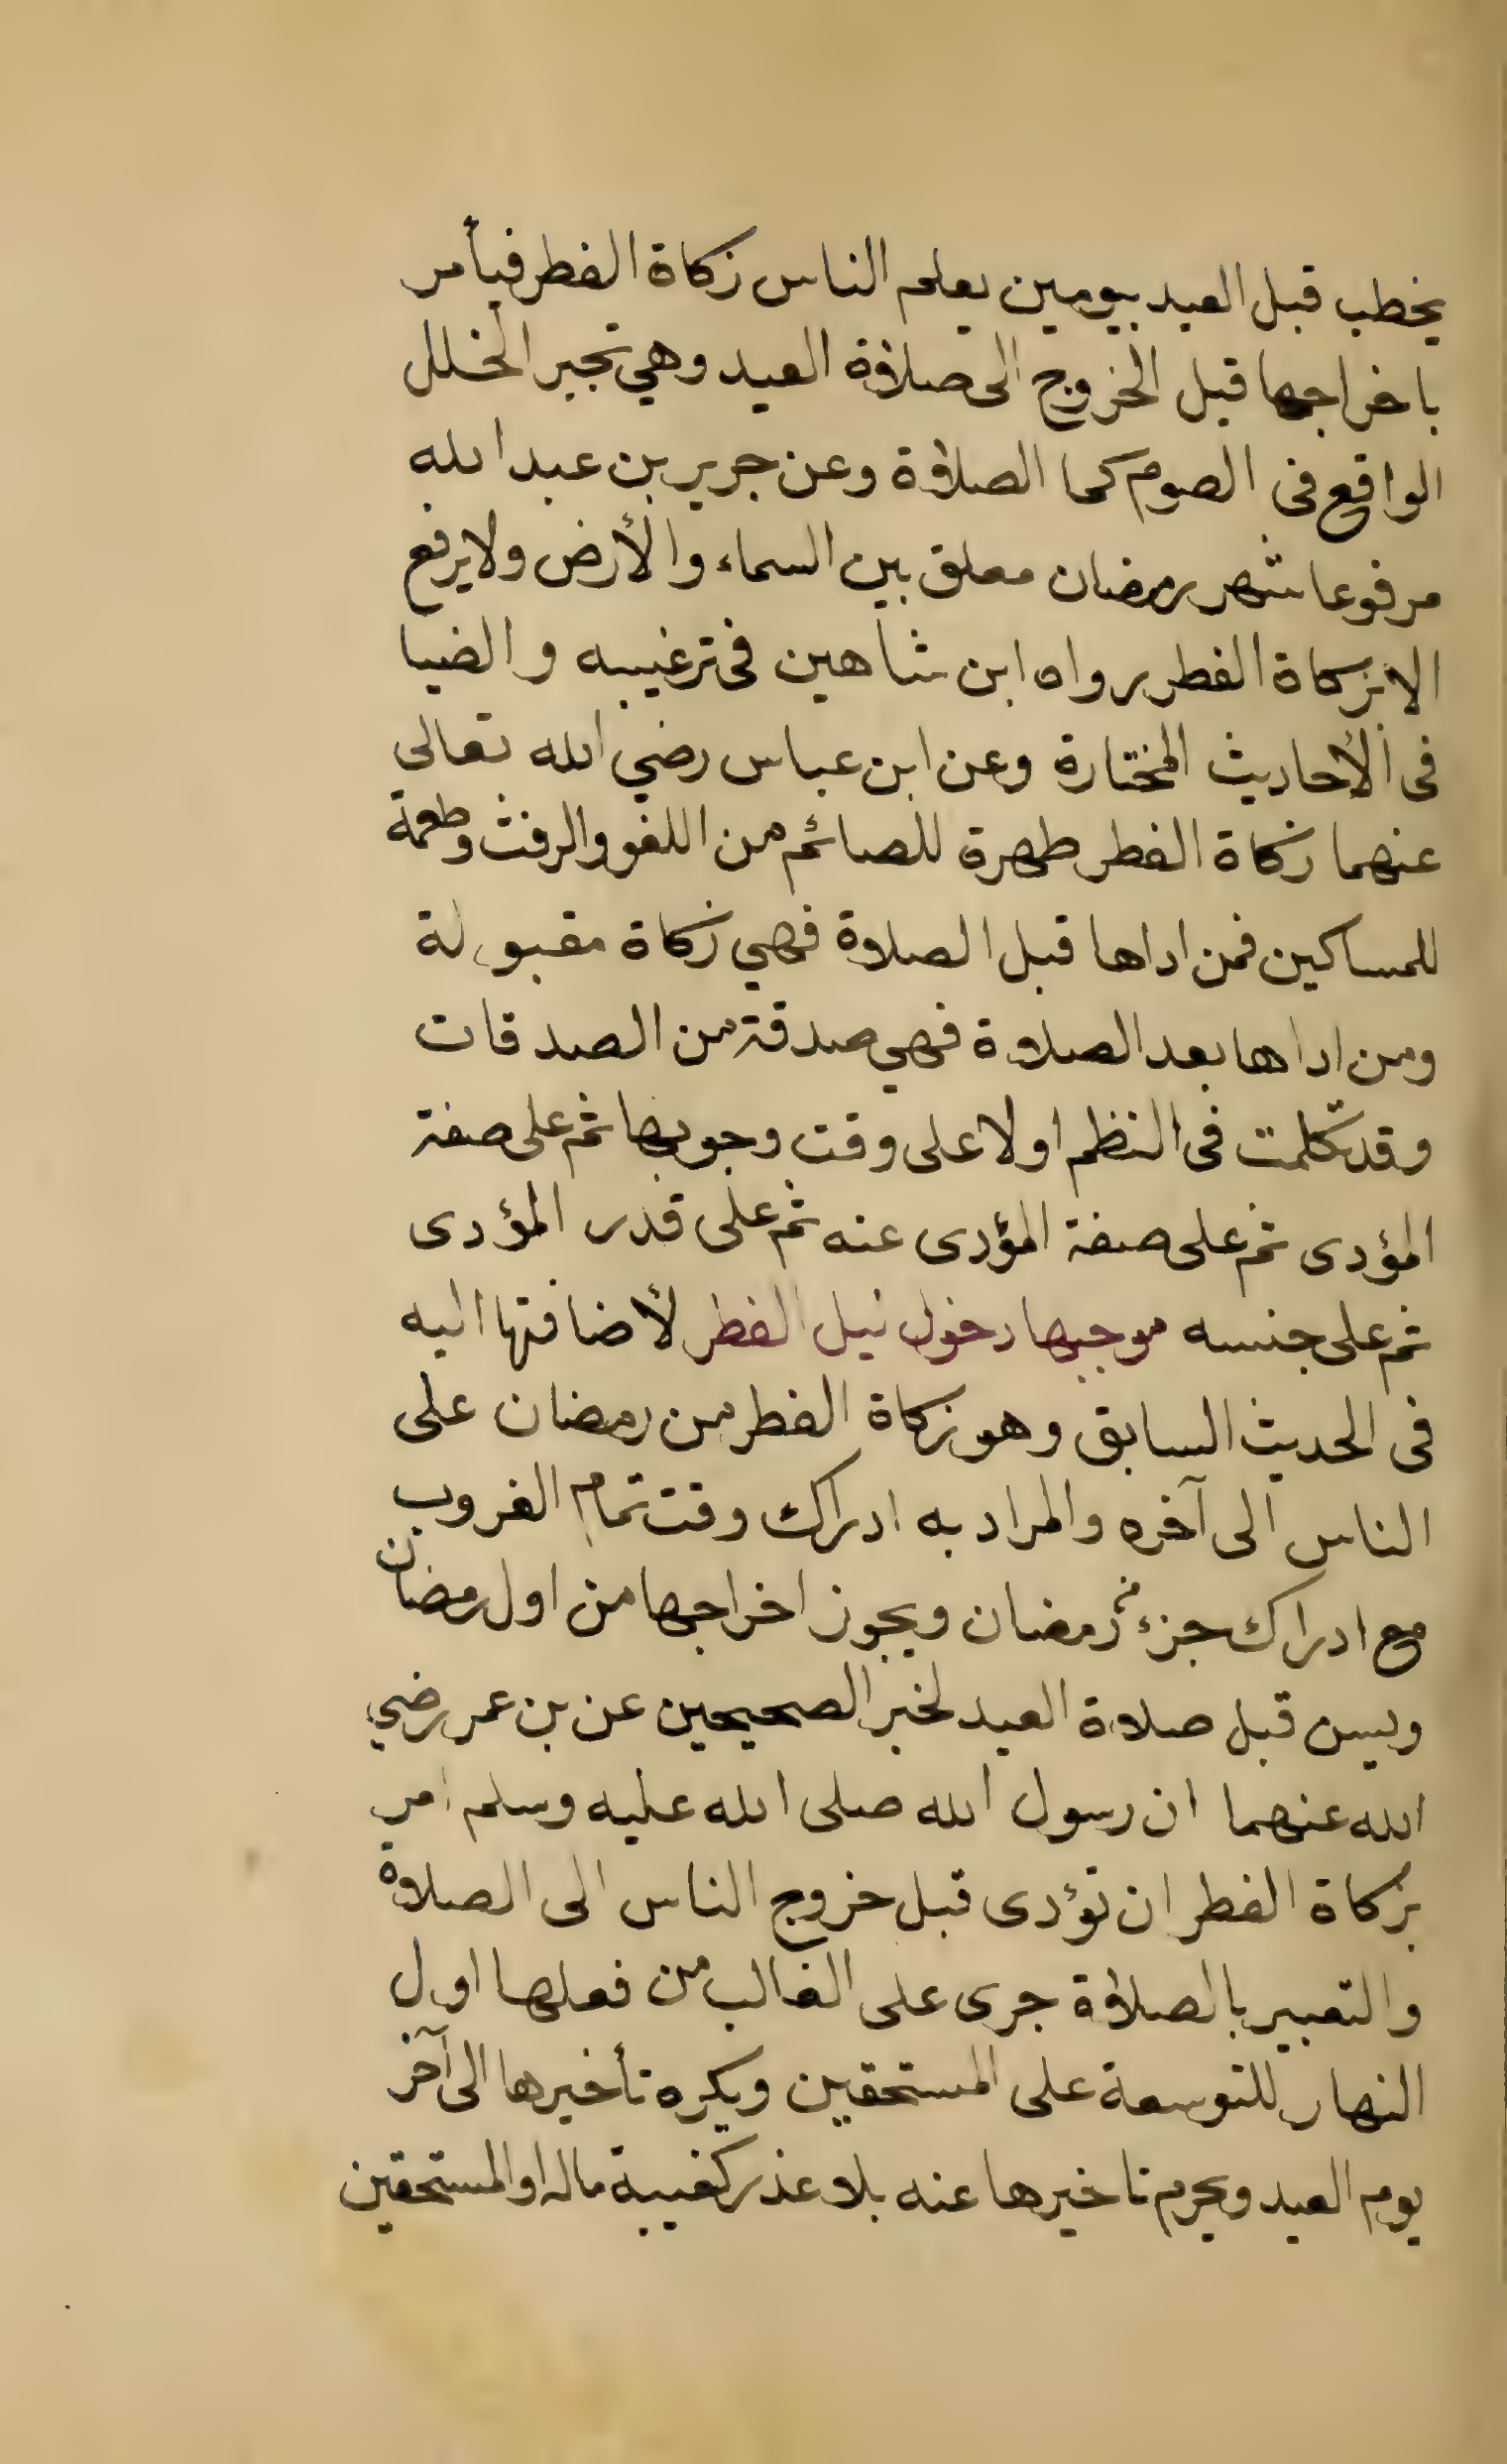 يخطب قبل العيد بيومين يعلم الناس زكاة الفطر فيأمر
باخراجها قبل الخروج الى صلاة العيد وهي تجبر الخلل
الواقع فى الصوم كما الصلاة وعن جرير بن عبد الله
مرفوعا شهر رمضان معلق بين السماء والأرض ولا يرفع
الا بزكاة الفطر رواه ابن شاهين فى ترغيبه والضيا
فى الأحاديث المختارة وعن ابن عباس رضي الله تعالى
عنهما زكاة الفطر طهرة للصائم من اللغو والرفث وطعمة
للمساكين فمن اداها قبل الصلاة فهي زكاة مقبولة
ومن اداها بعد الصلاة فهي صدقة من الصدقات
وقد تكلمت فى النظم اولا على وقت وجوبها ثم على صفة
المؤدى ثم على صفة المؤدى عنه ثم على قدر المؤدى
ثم على جنسه موجبها دخول ليل الفطر لأضافتها اليه
فى الحديث السابق وهو زكاة الفطر من رمضان على
الناس الى آخره والمراد به ادراك وقت تمام الغروب
مع ادراك جزء من رمضان ويجوز اخراجها من اول رمضان
ويسن قبل صلاة العيد لخبر الصحيحين عن بن عمر رضي
الله عنهما ان رسول الله صلى الله عليه وسلم امر
بزكاة الفطر ان تؤدى قبل خروج الناس الى الصلاة
والتعبير بالصلاة جرى على الغالب من فعلها اول
النهار للتوسعة على المستحقين ويكره تأخيرها الى آخر
يوم العيد ويحرم تاخيرها عنه بلا عذر كغيبة ماله او المستحقين